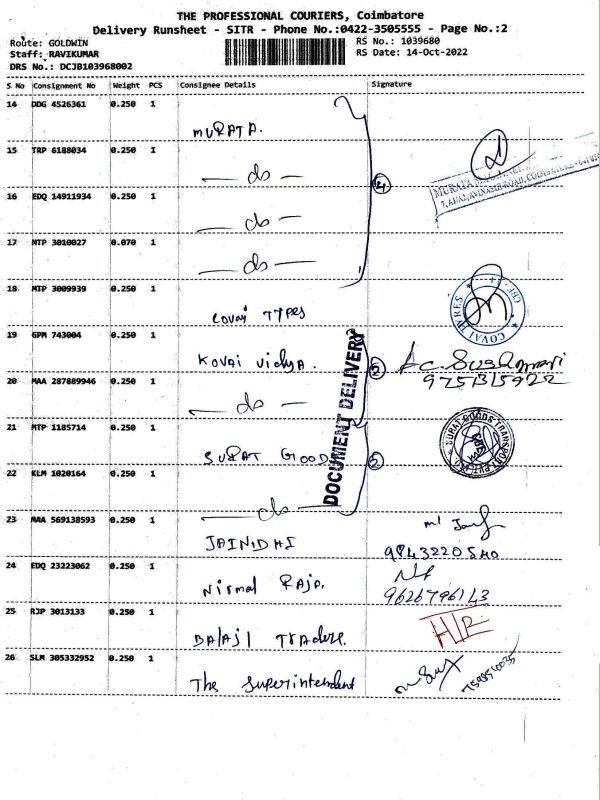 THE PROFESSIONAL COURIERS, Coimbatore
Delivery Runsheet - SITR - Phone No.:0422-3505555 - Page No.:2
Route: GOLDWIN RS No.: 1039680
Staff: RAVIKUMAR RS Date: 14-Oct-2022
DRS No.: DCJB103968002
S No Consignment No Weight PCS Consignee Details Signature
14 DDG 4526361 0.250 1
MURATA.
15 TRP 6188034 0.250 1
— do —
16 EDQ 14911934 0.250 1
— do —
17 MTP 3010027 0.070 1
— do —
4
18 MTP 3009939 0.250 1
covai TYPES
COVAI TYRES
19 GPM 743004 0.250 1
KOVAI Vidya.
20 MAA 287889946 0.250 1
— do —
2
DOCUMENT DELIVERY
21 MTP 1185714 0.250 1
SURAT GOODS
SURAT GOODS TRANSPORT
22 KLM 1020164 0.250 1
— do —
2
23 MAA 569138593 0.250 1
JAINIDHI
24 EDQ 23223062 0.250 1
Nirmal Raja.
9626796143
25 RJP 3013133 0.250 1
Balaji Traders.
26 SLM 305332952 0.250 1
The Superintendent